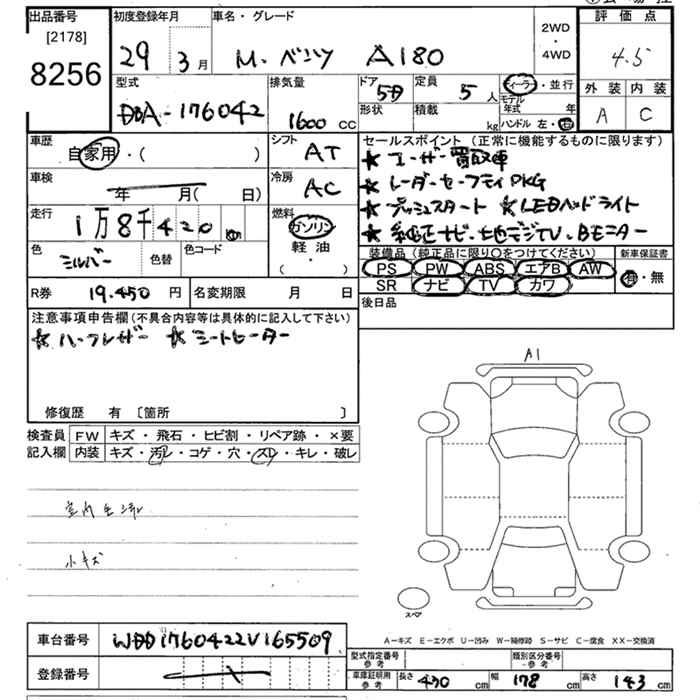 出品番号 初度登録年月 車名・グレード 2WD・4WD 評価点
[2178]
8256 29年 3月 M・ベンツ A180 4.5
型式 排気量 ドア 5D 定員 5人 ディーラー・並行 外装 内装
DBA-176042 1600cc 形状 積載 kg モデル年式 年 A C
ハンドル 左・右
車歴 自家用・( ) シフト AT セールスポイント(正常に機能するものに限ります)
★ユーザー買取車
車検 年 月( 日) 冷房 AC ★レーダーセーフティPKG
走行 1万8千420 km 燃料 ガソリン ★プッシュスタート ★LEDヘッドライト
軽油 ★純正ナビ・地デジTV・Bモニター
色 シルバー 色替 色コード ( ・ ) 装備品(純正品に限り○をつけてください) 新車保証書
PS PW ABS エアB AW 有・無
R券 19.450円 名変期限 月 日 SR ナビ TV カワ
後日品
注意事項申告欄(不具合内容等は具体的に記入して下さい)
★ハーフレザー ★シートヒーター
A1
修復歴 有 〔箇所 〕
検査員 FW キズ・飛石・ヒビ割・リペア跡・×要
記入欄 内装 キズ・汚レ・コゲ・穴・スレ・キレ・破レ
小キズ
スペア
A-キズ E-エクボ U-凹み W-補修跡 S-サビ C-腐食 XX-交換済
車台番号 WDD1760422V165509
型式指定番号 参考 類別区分番号 参考
登録番号 車庫証明用 参考 長さ 430cm 幅 178cm 高さ 143cm